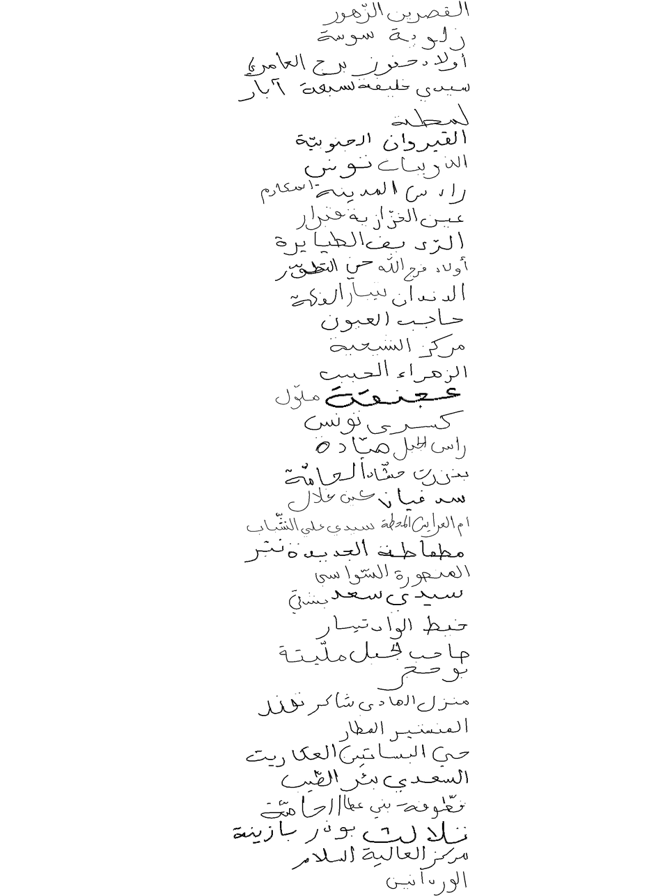 القصرين الزّهور
زلوبة سوسة
أولاد حفوز برج العامري
سيدي خليفة سبعة آبار
لمطة
القيروان الجنوبيّة
الذريبات تونس
رأس المدينة المكارم
عين الغزازية منزار
الطيايرة
أولاد فرج الله حي التطوّر
الدندان
حاجب العيون
مركز الشيحية
الزهراء الحبيب
ملّول
كسرى تونس
رأس الجبل ميّادة
بنزرت حشّاد الحامّة
سد فيان عين علال
ام العرايس المحطة سيدي علي الشبّاب
مطماطة الجديدة
المنصورة السّواسي
سيدي سعد
خيط الواد تيبار
صاحب الجبل ملّيتة
بو حجر
منزل الهادي شاكر
المنستير العطار
حي البساتين العكاريت
السعدي بئر الطّيب
بني عطا الحامّة
ثلالث بازينة
مركز العالية السلام
الوردانين